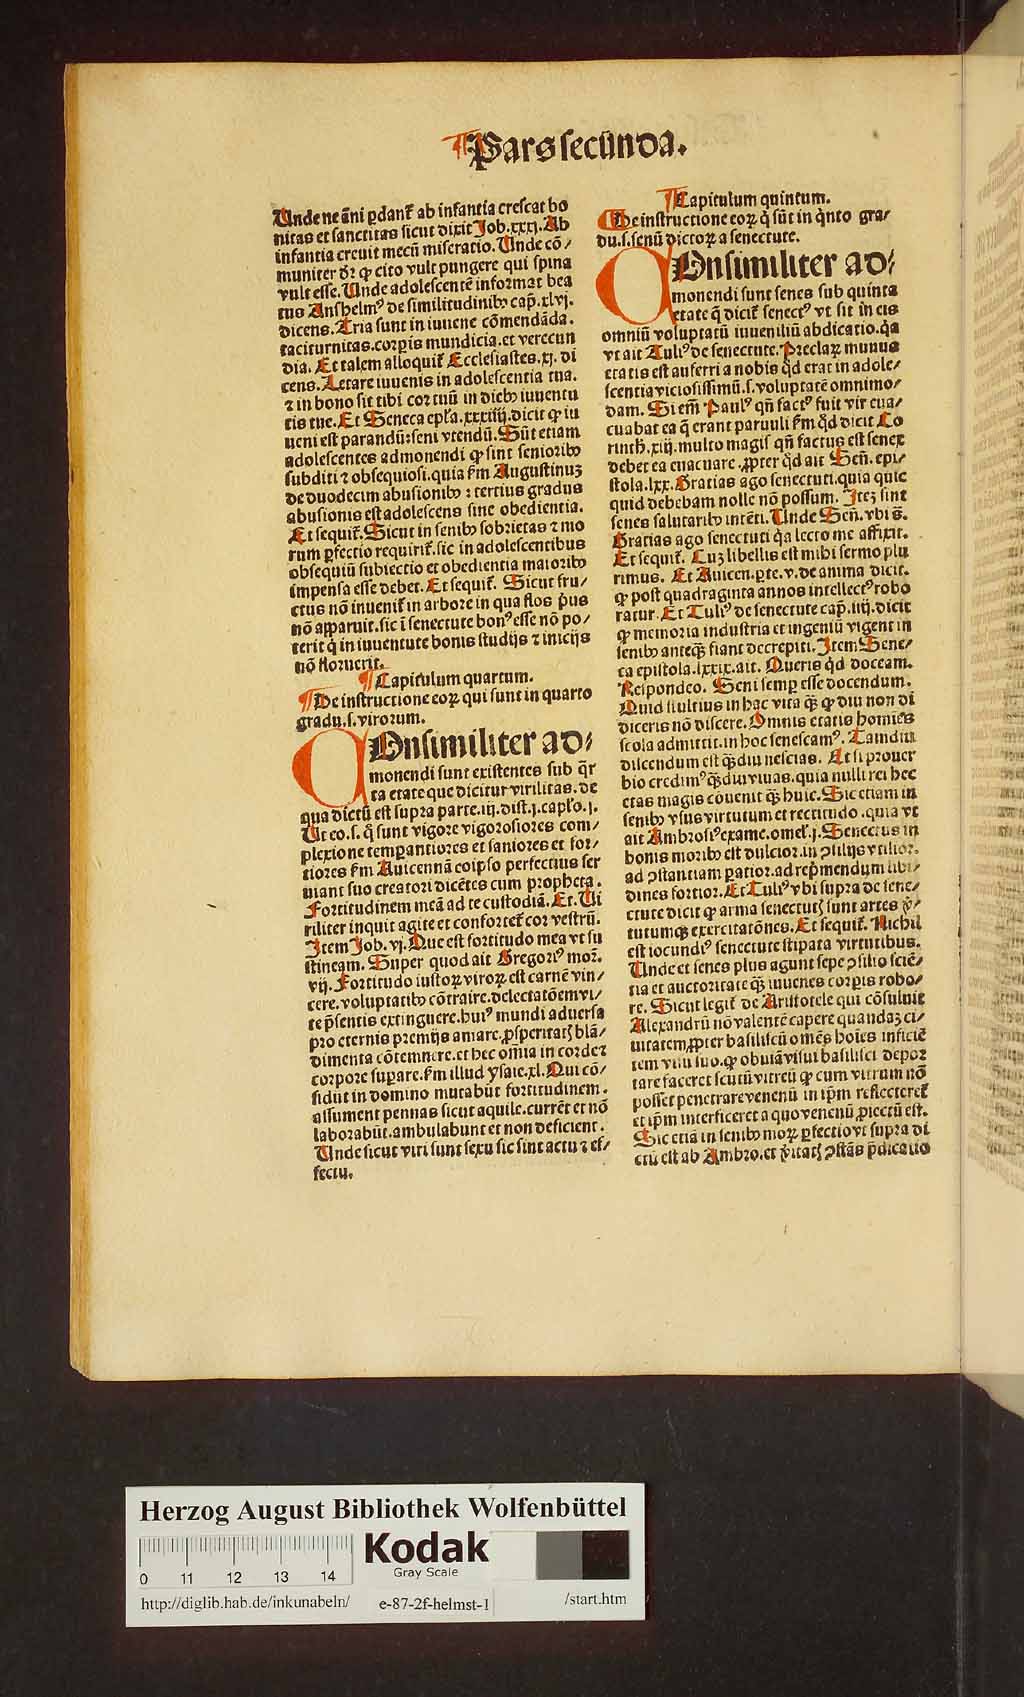 ¶ Pars secūnda.
Unde ne āni ꝑdant᷑ ab infantia crescat bo
nitas et sanctitas sicut dixit Job.xxxj. Ab
infantia creuit mecū miseratio. Unde cō/
muniter dr̄ ꝙ cito vult pungere qui spina
vult esse. Unde adolescentē informat bea
tus Anshelmꝰ de similitudinibꝰ cap̄. xlvj.
dicens. Tria sunt in iuuene cōmendāda.
taciturnitas.corꝑis mundicia.et verecun
dia. Et talem alloquit᷑ Ecclesiastes.xj. di
cens. Letare iuuenis in adolescentia tua.
⁊ in bono sit tibi cor tuū in diebꝰ iuuentu
tis tue. Et Seneca epl̄a.xxxiiij.dicit ꝙ iu
ueni est parandū: seni vtendū. Sūt etiam
adolescentes admonendi ꝙ sint senioribꝰ
subditi ⁊ obsequiosi.quia fm̄ Augustinuꝫ
de duodecim abusionibꝰ : tertius gradus
abusionis est adolescens sine obedientia.
Et sequit᷑. Sicut in senibꝰ sobrietas ⁊ mo
rum ꝑfectio requirit᷑.sic in adolescentibus
obsequiū subiectio et obedientia maioribꝰ
impensa esse debet. Et sequit᷑. Sicut fru/
ctus nō inuenit᷑ in arbore in qua flos pͥus
nō apparuit.sic ī senectute bonꝰ esse nō po/
terit q̇ in iuuentute bonis studijs ⁊ inicijs
nō floruerit.
¶ Capitulum quartum.
¶ De instructione eoꝝ qui sunt in quarto
gradu.s.virorum.
COnsimiliter ad/
monendi sunt existentes sub q̄r
ta etate que dicitur virilitas.de
qua dictū est supra parte.iij.dist.j.capl̄o.j.
Ut eo.s. q̄ sunt vigore vigorosiores com/
plexione temꝑantiores et saniores et for/
tiores fm̄ Auicennā eoip̄so perfectius ser
uiant suo creatori dicētes cum propheta.
Fortitudinem meā ad te custodiā. Et. Vi
riliter inquit agite et confortet᷑ cor vestrū.
Item Job.vj. Que est fortitudo mea vt su
stineam. Super quod ait Gregoriꝰ mor̄.
vij. Fortitudo iustoꝝ viroꝝ est carnē vin/
cere.voluptatibꝰ cōtraire.delectatōem vi/
te p̄sentis extinguere.huiꝰ mundi aduersa
pro eternis premijs amare.ꝓsperitatꝭ blā/
dimenta cōtemnere.et hec om̄ia in corde ⁊
corpore suꝑare.fm̄ illud ysaie.xl. Qui cō/
fidūt in domino mutabūt fortitudinem.
assument pennas sicut aquile.currēt et nō
laborabūt.ambulabunt et non deficient.
Unde sicut viri sunt sexu sic sint actu ⁊ ef/
fectu.
¶ Capitulum quintum.
¶ De instructione eoꝝ q̇ sūt in q̇nto gra/
du.s.senū dictoꝝ a senectute.
COnsimiliter ad/
monendi sunt senes sub quinta
etate q̄ dicit᷑ senectꝰ vt sit in eis
omniū voluptatū iuueniliū abdicatio.q̇a
vt ait Tuliꝰ de senectute. Preclaꝝ munus
etatis est auferri a nobis qd̄ erat in adole/
scentia viciosissimū.s.voluptatē omnimo/
dam. Si em̄ Paulꝰ qn̄ factꝰ fuit vir eua/
cuabat ea q̄ erant paruuli fm̄ qd̄ dicit Co
rinth.xiij.multo magis qn̄ factus est senex
debet ea euacuare.ꝓpter qd̄ ait Sen̄. epi/
stola.lxx. Gratias ago senectuti.quia quic
quid debebam nolle nō possum. Iteꝫ sint
senes salutaribꝰ intēti. Unde Sen̄. vbi s̄.
Gratias ago senectuti q̇a lecto me affixit.
Et sequit᷑. Cuꝫ libellis est mihi sermo plu
rimus. Et Auicen.ꝑte.v.de anima dicit.
ꝙ post quadraginta annos intellectꝰ robo
ratur. Et Tuliꝰ de senectute cap̄.iiij.dicit
ꝙ memoria industria et ingeniū vigent in
senibꝰ anteqꝫ fiant decrepiti. Item Sene/
ca epistola.lxxix.ait. Queris qd̄ doceam.
Respondeo. Seni semꝑ esse docendum.
Quid stultius in hac vita qꝫ ꝙ diu non di
diceris nō discere. Omnis etatis homīes
scola admittit.in hoc senescamꝰ. Tamdiu
discendum est qꝫdiu nescias. Et si prouer
bio credimꝰ qꝫdiu viuas.quia nulli rei hec
etas magis cōuenit qꝫ huic. Sic etiam in
senibꝰ vsus virtutum et rectitudo.quia vt
ait Ambrosiꝰ exame.omel̓.j. Senectus in
bonis moribꝰ est dulcior.in ꝯsilijs vtilior.
ad ꝯstantiam ꝑatior.ad rep̄mendum libi/
dines fortior. Et Tuliꝰ vbi supra de sene/
ctute dicit ꝙ arma senectutꝭ sunt artes vͥ/
tutumqꝫ exercitatōnes. Et sequit᷑. Nichil
est iocundiꝰ senectute stipata virtutibus.
Unde et senes plus agunt sepe ꝯsilio sciē/
tia et auctoritate qꝫ iuuenes corꝑis robo/
re. Sicut legit᷑ de Aristotele qui cōsuluit
Alexandrū nō valentē capere quandaꝫ ci/
uitatem.ꝓpter basiliscū om̄es hoīes inficiē
tem visu suo.ꝙ obuiā visui basilisci depor
tare faceret scutū vitreū ꝙ cum vitrum nō
posset penetrare venenū in ip̄m reflecteret᷑
et ip̄m interficeret a quo venenū ꝓiectū est.
Sic etiā in senibꝰ moꝝ ꝑfectio vt supra di
ctū est ab Ambro.et vͥitatꝭ ꝯstās p̄dicatio
Herzog August Bibliothek Wolfenbüttel
0 11 12 13 14
Kodak
Gray Scale
http://diglib.hab.de/inkunabeln/ e-87-2f-helmst-1 /start.htm